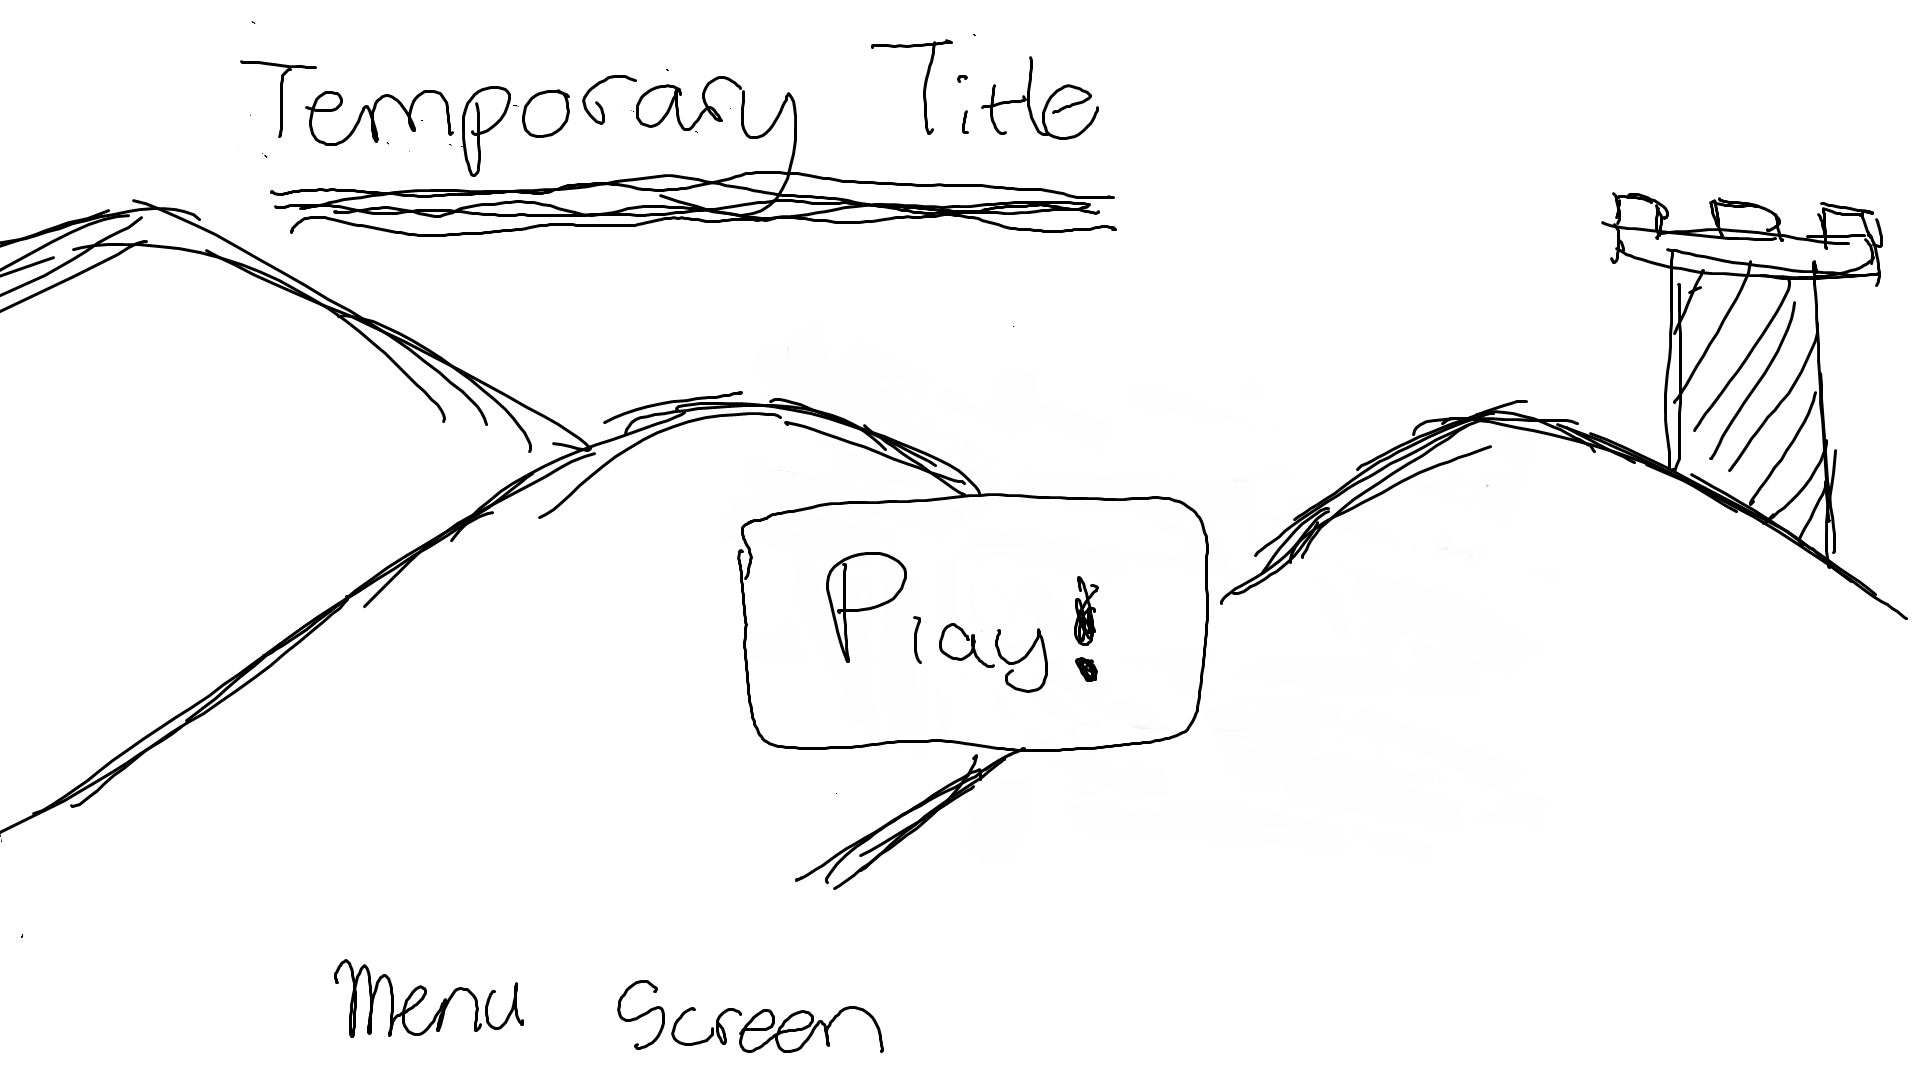 Temporary Title
Play!
Menu Screen